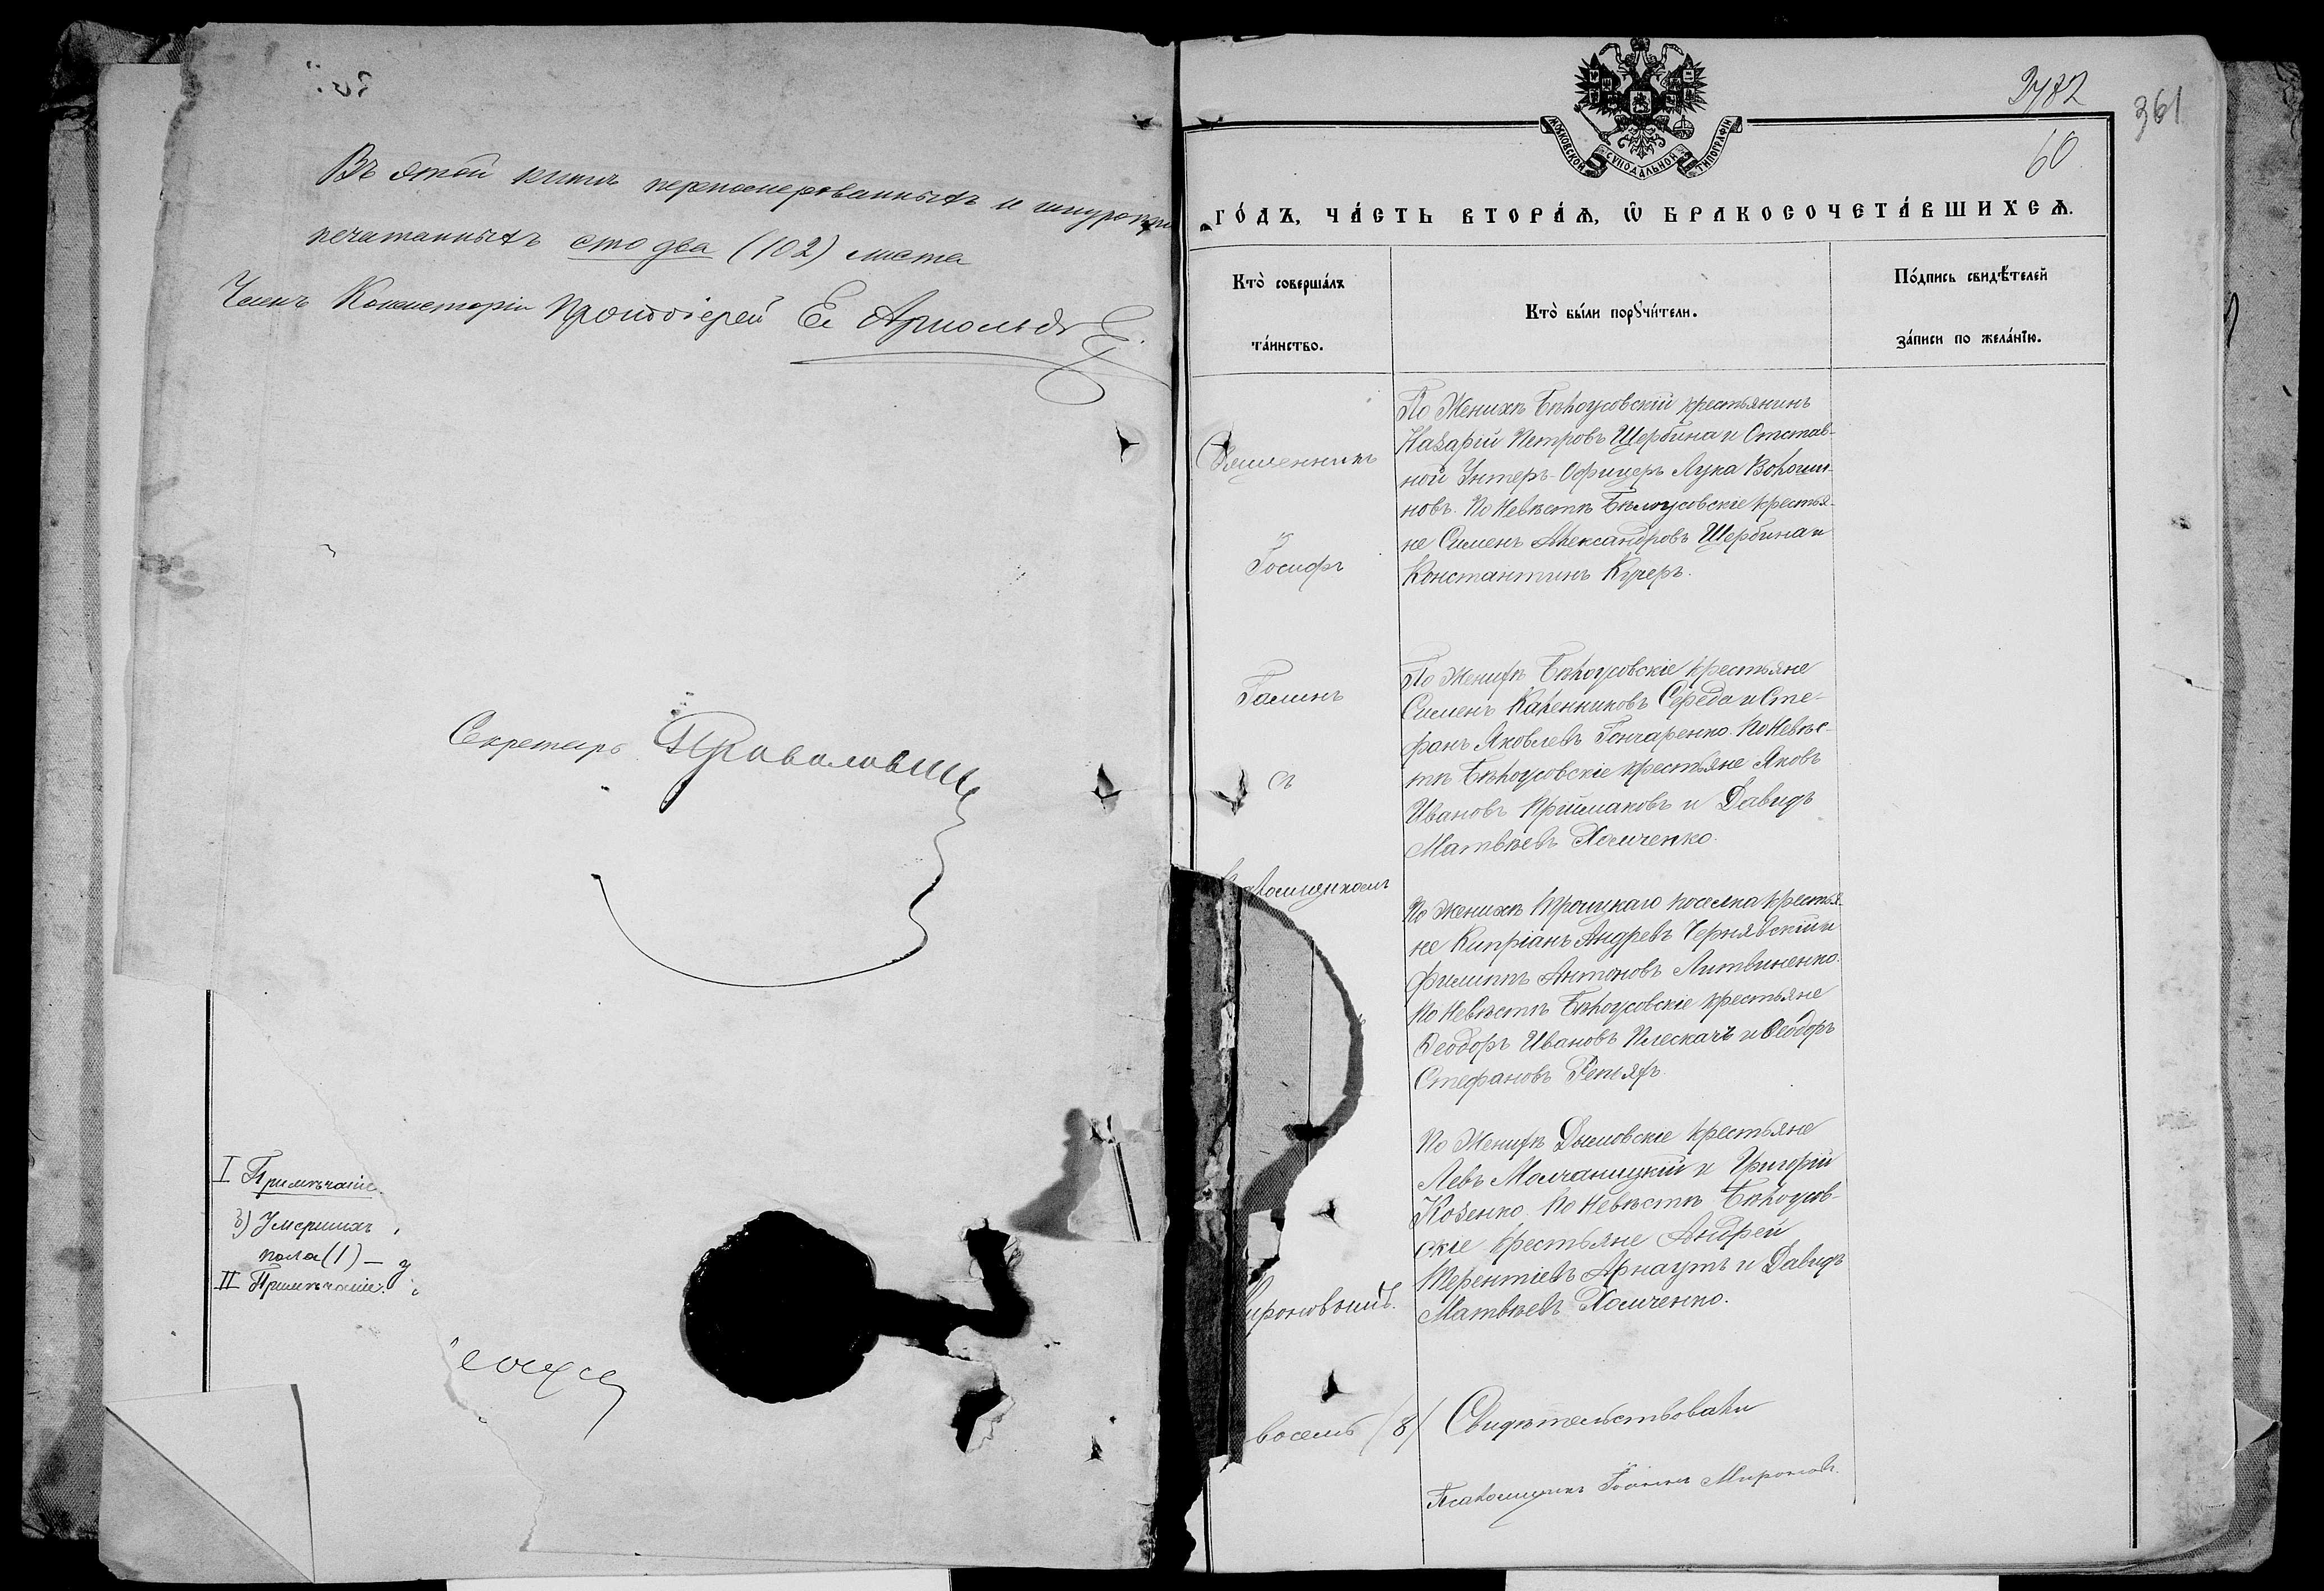 Въ этой книгѣ перенумерованныхъ и шнуропри
печатанныхъ сто два (102) листа
Членъ Консисторіи Протоіерей Ев Арнольдъ
Секретарь
I Примѣчаніе.
3) Умершихъ
пола (1) —
II Примѣчаніе:
3782
361
60
МОСКОВСКОЙ СѴНОДАЛЬНОЙ ТИПОГРАФІИ
ГО́ДЪ, ЧА́СТЬ ВТОРА́Ѧ, Ѡ҆ БРАКОСОЧЕТА́ВШИХСѦ.
Кто̀ соверша́лъ
та́инство.
Кто̀ бы́ли порꙋчи́тели.
По́дпись свидѣ́телей
за́писи по жела́нїю.
Священникъ
Іосифъ
Галинъ
съ
восемь /8/
По Женихѣ Бѣлоусовскій крестьянинъ
Назарій Петровъ Щербина и Отстав-
ной Унтеръ-Офицеръ Лука Волошин-
новъ. По Невѣстѣ Бѣлоусовскіе крестья-
не Сименъ Александровъ Щербина и
Константинъ Кучеръ.
По Женихѣ Бѣлоусовскіе крестьяне
Сименъ Каленниковъ Середа и Сте-
фанъ Яковлевъ Гончаренко. По Невѣс-
тѣ Бѣлоусовскіе крестьяне Яковъ
Ивановъ Приймаковъ и Давидъ
Матвѣевъ Хомченко.
По Женихѣ Троицкаго поселка крестья-
не Кипріанъ Андревъ Чернявскій и
Филиппъ Антоновъ Литвиненко.
По Невѣстѣ Бѣлоусовскіе крестьяне
Ѳеодоръ Ивановъ Плескачъ и Ѳеодоръ
Стефановъ Репяхъ.
По Женихѣ Дымовскіе крестьяне
Левъ Молчаницкій и Григорій
Козенко. По Невѣстѣ Бѣлоусов-
скіе крестьяне Андрей
Терентіевъ Арнаутъ и Давидъ
Матвѣевъ Хомченко.
Свидѣтельствовали
Псаломщикъ Іоаннъ Мироновъ.